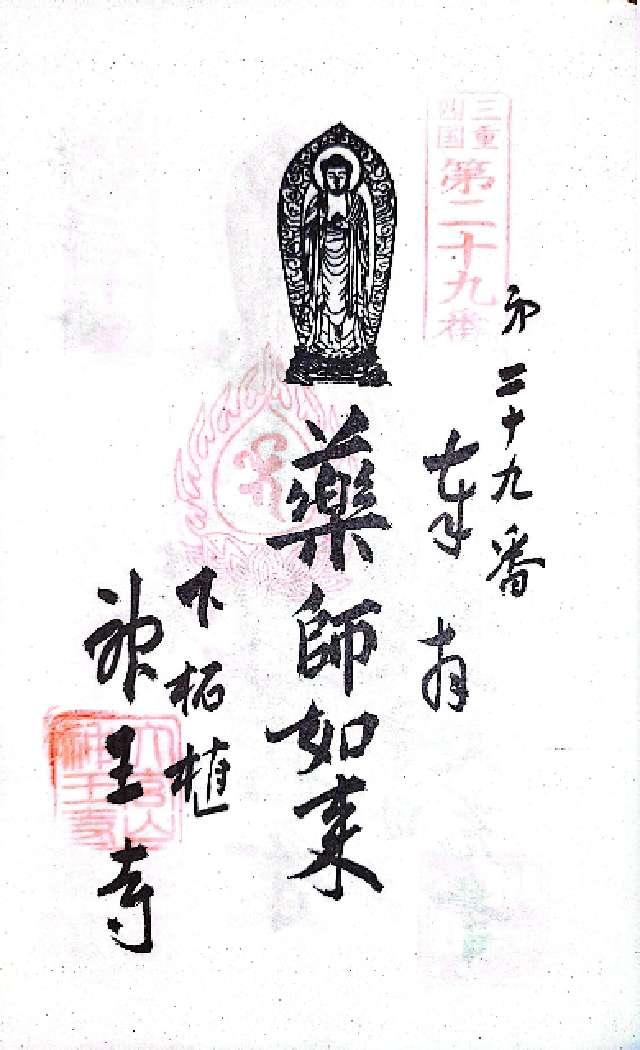 三重
四国
第二十九番
第二十九番
奉拝
薬師如来
下柘植
神王寺
神王寺